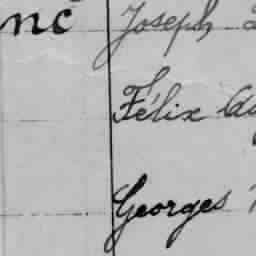 nc
Joseph
Félix
Georges